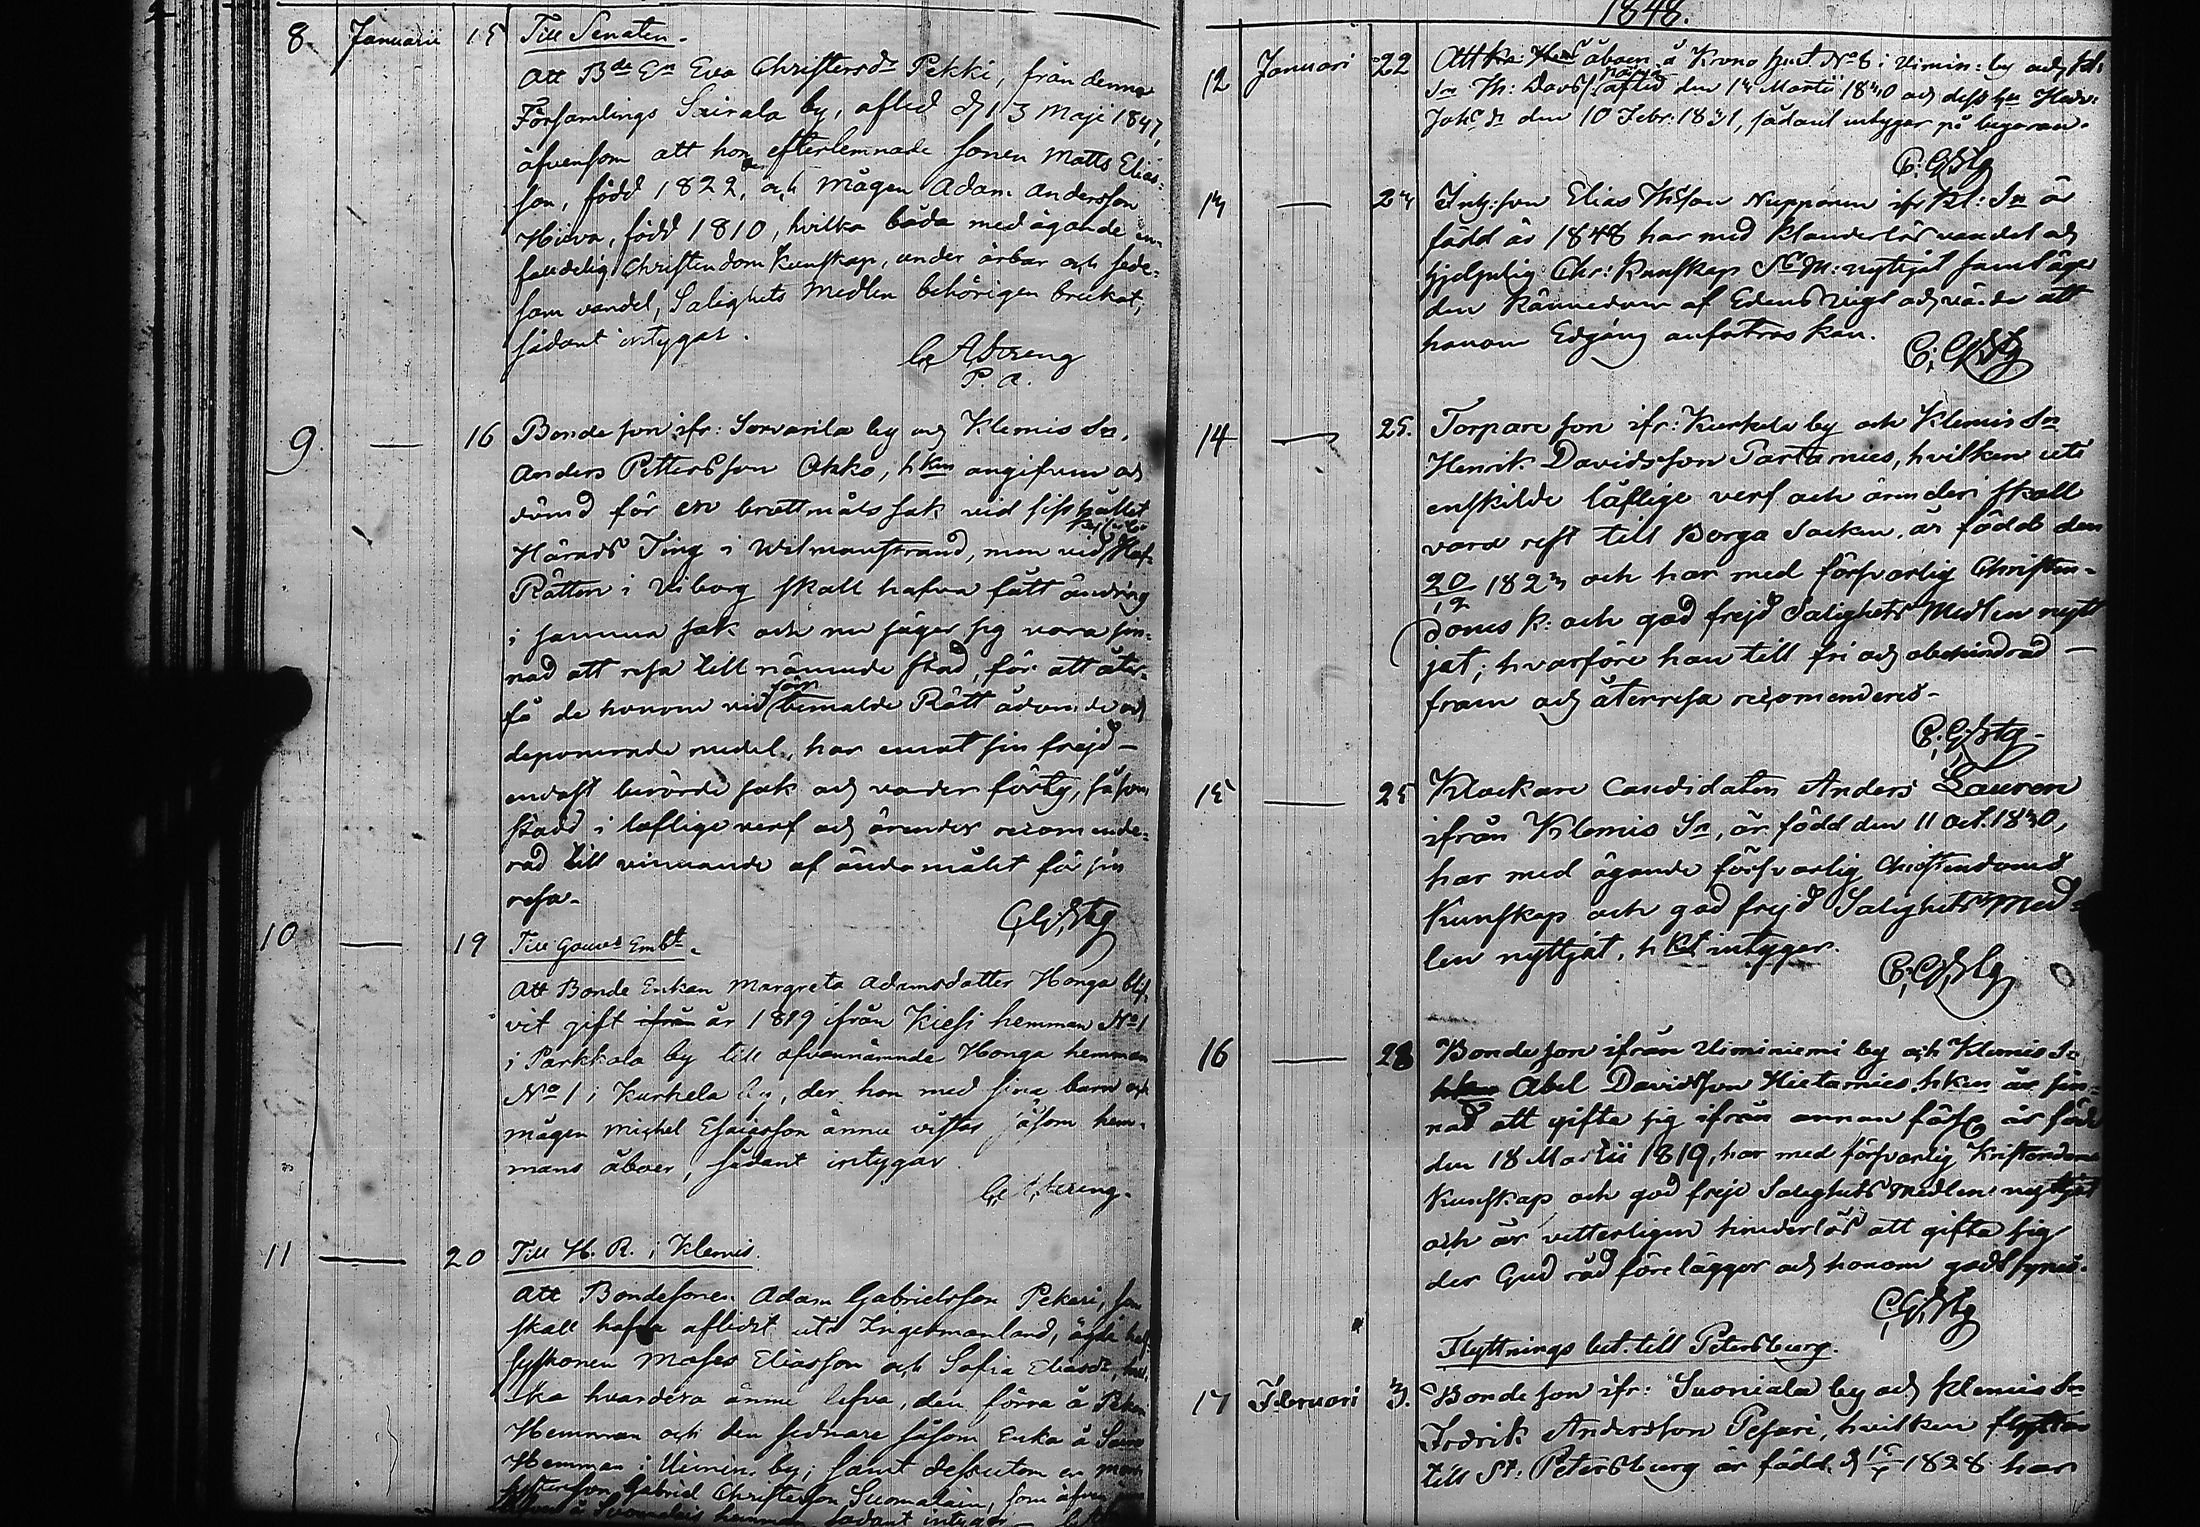 8. Januarii 15 Till Senaten.
Att Bde En Eva Christersdr Pekki, från denna
Församlings Sairala by, afled d 13 Maji 1847,
äfvensom att hon efterlemnade sonen Matts Elias-
son, född 1822, och mågen Adam Andersson
Hirva, född 1810, hvilka båda med ägande en-
faldelig Christendom Kunskap, under ärbar och sede-
sam vandel, Salighets Medlen behörigen brukat,
sådant intygar.
C. A. Streng
P. a.
9. — 16 Bondeson ifr: Sorvarila by och Klemis Sn,
Anders Pettersson Okko, hken angifven och
dömd för en brottmåls sak vid sist hållet
Härads Ting i Wilmanstrand, men vid Kejserliga Hof-
Rätten i Viborg skall hafva fått ändring
i samma sak och nu säger sig vara sin-
nad att resa till nämnde stad, för att åter-
få de honom vid förbemälde Rätt ådömde och
deponerade medel, har emot sin frejd —
endast berörde sak och varder förty, såsom
stadd i laflige verf och ärender recomende-
rad till vinnande af ändamålet för sin
resa.
C. G. Stg
10 — 19 Till Gouvs Embt.
Att Bonde Enkan Margreta Adamsdotter Honga blif-
vit gift ifrån år 1819 ifrån Kiesi hemman No 1
i Parkkola by till ofvannämnde Honga hemman
No 1 i Kurkela by, der hon med sina barn och
mågen Michel Esaiasson ännu vistas såsom hem-
mans åboer, sådant intygar
C. A. Streng.
11 — 20 Till H. R. i Klemis.
Att Bondesonen Adam Gabrielsson Pekari, som
skall hafva aflidit uti Ingermanland, ägde half-
syskonen Moses Eliasson och Sofia Eliasdr, hvil-
ka hvardera ännu lefva, den förra å Pekari
Hemman och den sednare såsom Enka å
Hemman i Uimin. by; samt dessutom en
Gabriel Christersson Suomalain, som äfven
hemman sådant intygar —
1848.
12 Januari 22 Att åboen å Krono Hemt. No 6 i Uimin: by och Kl:
Sn Th: Davs/ afled den 14 Martii 1840 och dess hu Hedv:
Johsdr den 10 Febr: 1831, sådant intygar på begäran.
C. G. Stg
13 — 24 Inh:son Elias Thsson Nupponen ifr Kl: Sn är
född år 1848 har med klanderlös vandel och
hjelpelig Chr: Kunskap Ss M: nyttjat samt äger
den kännedom af Edens vigt och värde att
honom Edgång anförtros kan.
C. G. Stg
14 — 25. Torpare son ifr: Kurkela by och Klemis Sn
Henrik Davidsson Partamies, hvilken uti
enskilde laflige verf och ärender skall
vara rest till Borgå Socken, är född den
20/12 1823 och har med försvarlig Christen-
doms k: och god frejd Salighets Medlen nytt
jat; hvarföre han till fri och obehindrad —
fram och återresa recomenderas.
C. G. Stg.
15 — 25 Klockare Candidaten Anders Lauren
ifrån Klemis Sn, är född den 11 Oct. 1830,
har med ägande försvarlig Christendoms
Kunskap och god frejd Salighets Med-
len nyttjat, hket intygar.
C. G. Stg
16 — 28 Bondeson ifrån Uiminiemi by och Klemis Sn
hken Abel Davidsson Hietamies, hken är sin-
nad att gifta sig ifrån annan förs: är född
den 18 Martii 1819, har med försvarlig Kristendoms
Kunskap och god frejd Salighets Medlen nyttjat
och är vetterligen hinderlös att gifta sig
der Gud råd förelägger och honom godt synes.
C. G. Stg
Flyttnings bet. till Petersburg.
17 Februari 3. Bonde son ifr: Suoniala by och Klemis Sn
Fredrik Andersson Pesari, hvilken flyttar
till St. Petersburg är född d 1828 har